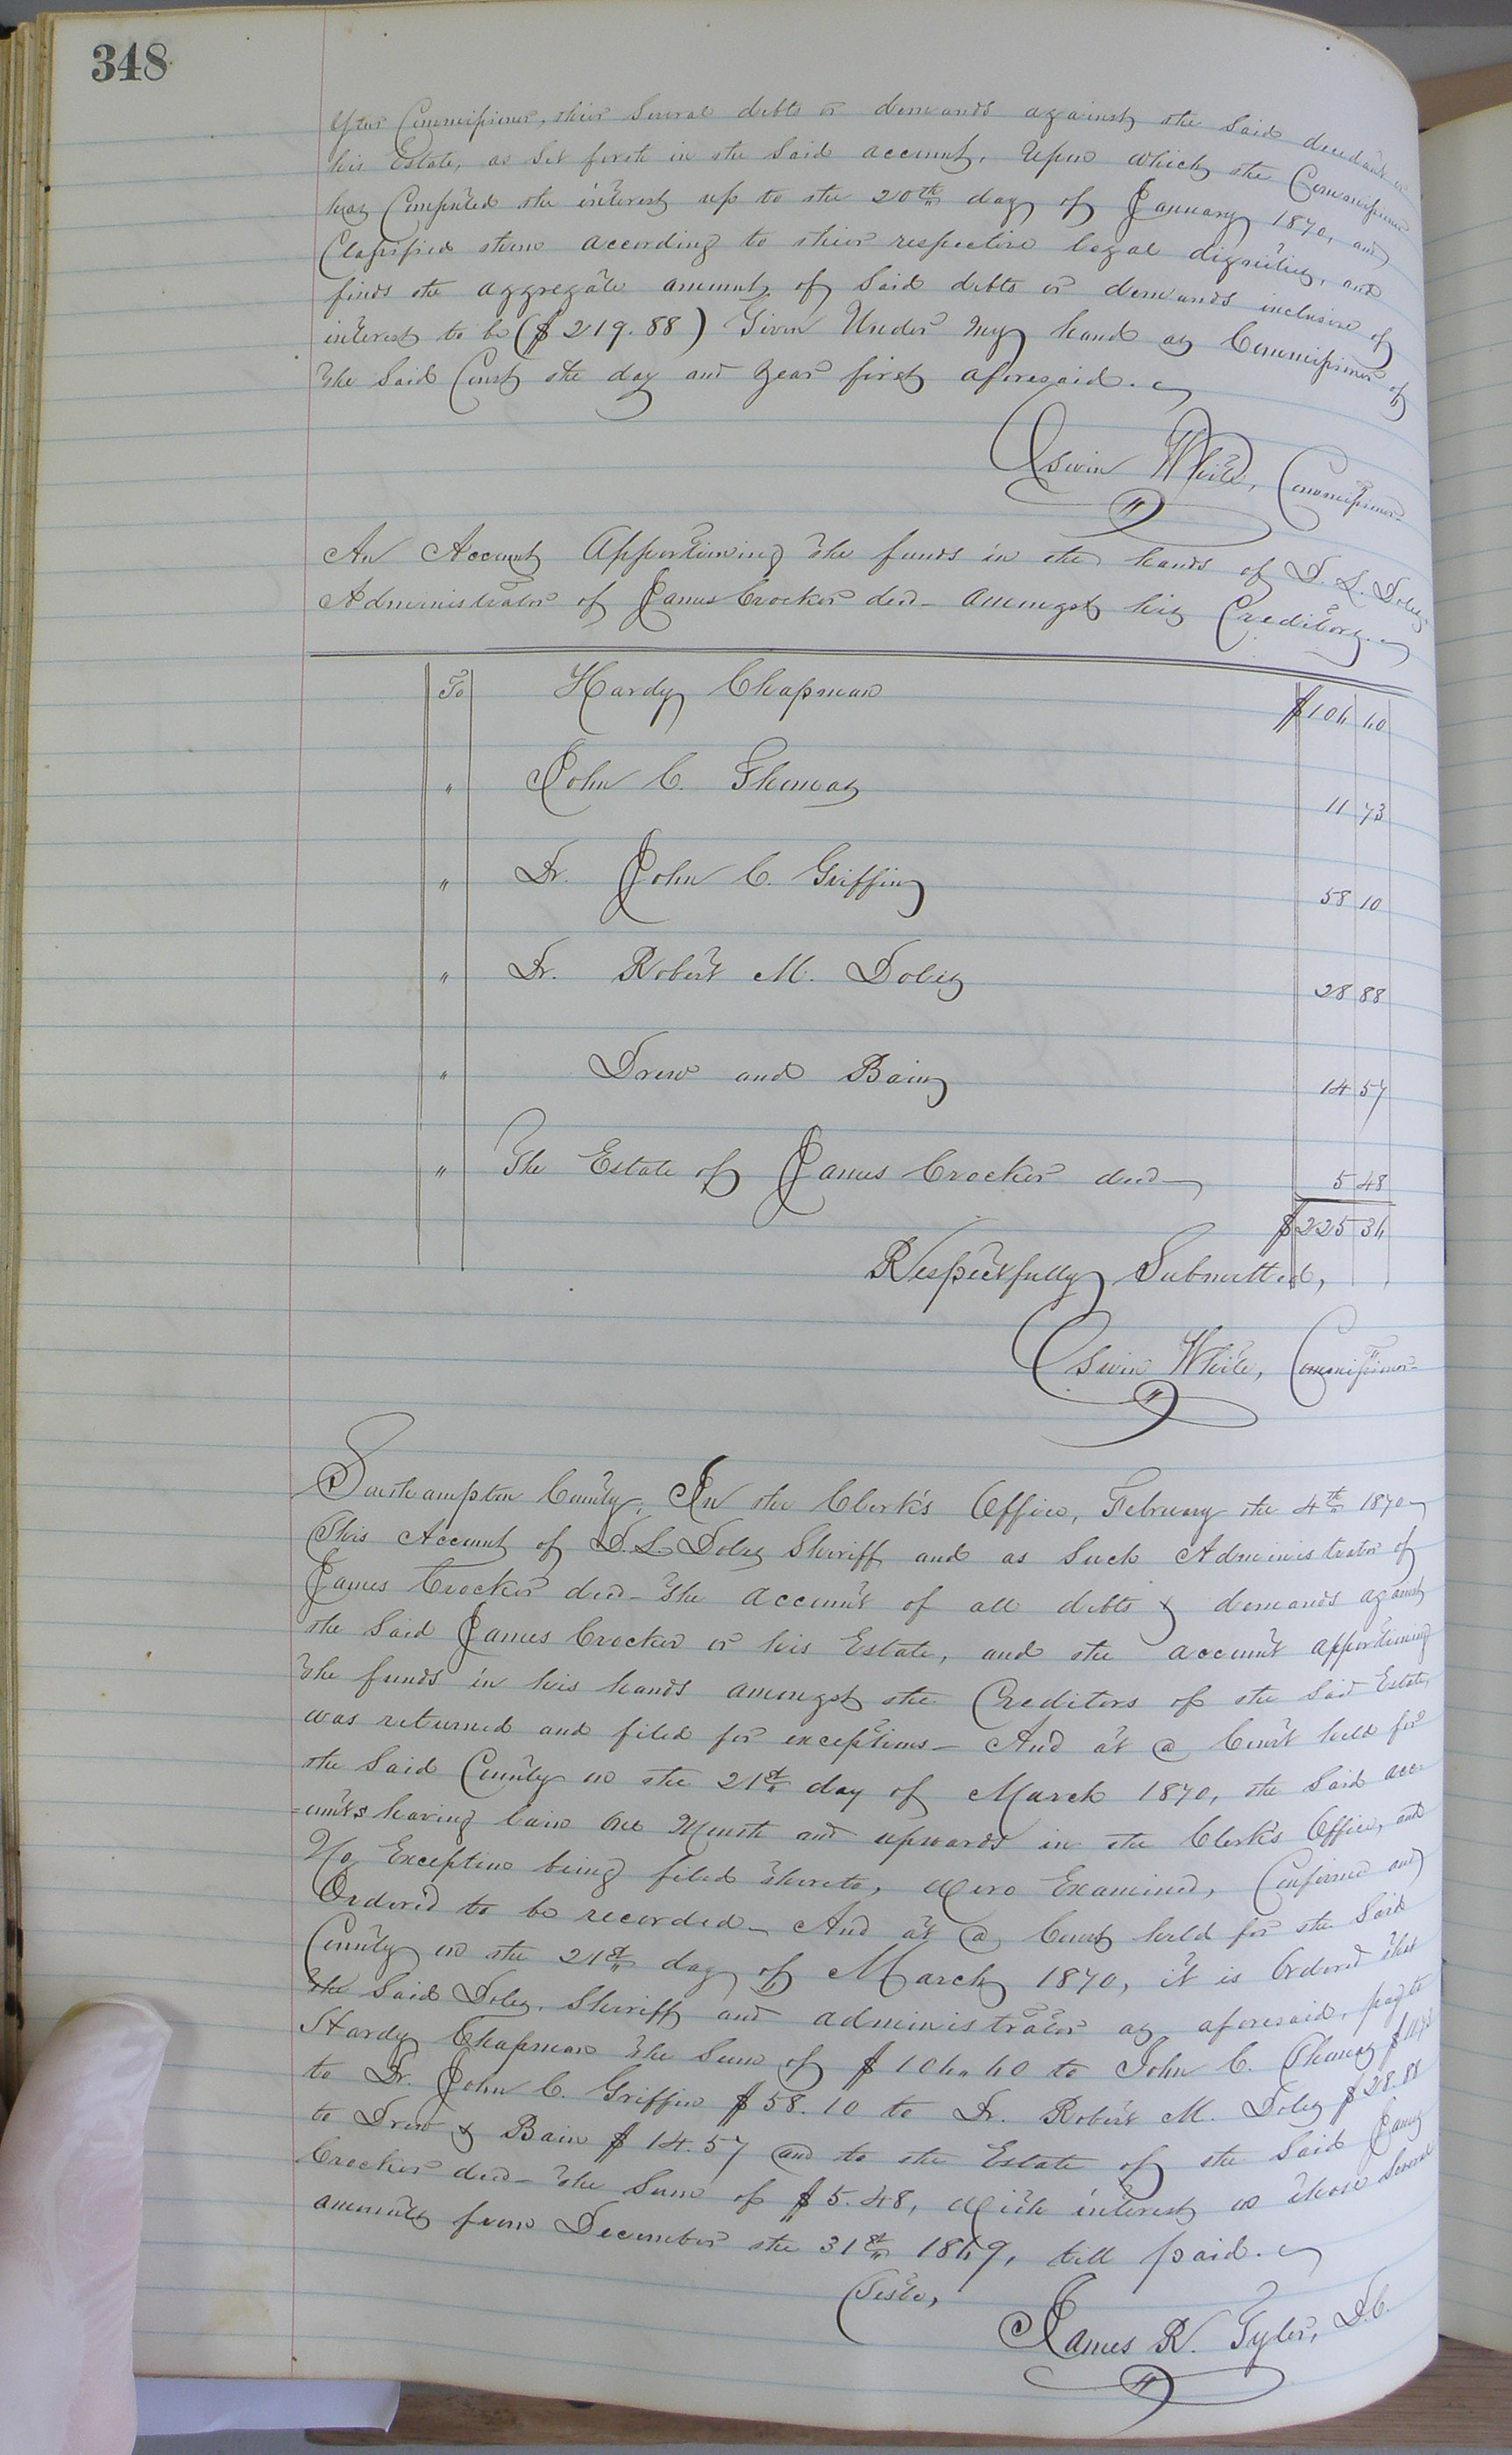 348
Your Commissioner, their Several debts or demands against the Said decedant or
his Estate, as Set forth in the Said account, Upon which the Commissioner
has Computed the interest up to the 20th day of January 1870, and
Classified them according to their respective legal dignities, and
finds the aggregate amount of Said debts or demands inclusive of
interest to be ($219.88) Given Under my hand as Commissioner of
the Said Court the day and year first aforesaid.
Edwin White, Commissioner
An Account Apportioning the funds in the hands of D. L. Dobey
Administrator of James Crocker decd- amongst his Creditors.
To Hardy Chapman $106 60
" John C. Thomas 11 73
" Dr. John C. Griffin 58 10
" Dr. Robert M. Dobey 28 88
" Drew and Bain 14 57
" The Estate of James Crocker decd 5 48
$225 36
Respectfully Submitted,
Edwin White, Commissioner
Southampton County, In the Clerk's Office, February the 4th 1870
This Account of D. L. Dobey Sheriff and as Such Administrator of
James Crocker decd- the account of all debts & demands against
the Said James Crocker or his Estate, and the account apportioning
the funds in his hands amongst the Creditors of the Said Estate,
was returned and filed for exceptions- And at a Court held for
the Said County on the 21st day of March 1870, the Said acco
=unts having lain One Month and upwards in the Clerk's Office, and
No Exceptions being filed thereto, Were Examined, Confirmed and
Ordered to be recorded- And at a Court held for the Said
County on the 21st day of March 1870, it is Ordered that
the Said Dobey, Sheriff and administrator as aforesaid, pay to
Hardy Chapman the Sum of $106.60 to John C. Thomas $11.73
to Dr. John C. Griffin $58.10 to Dr. Robert M. Dobey $28.88
to Drew & Bain $14.57 and to the Estate of the Said James
Crocker decd- the Sum of $5.48, With interest on those Several
amounts from December the 31st 1869, till paid.
Teste,
James R. Tyler, D.C.